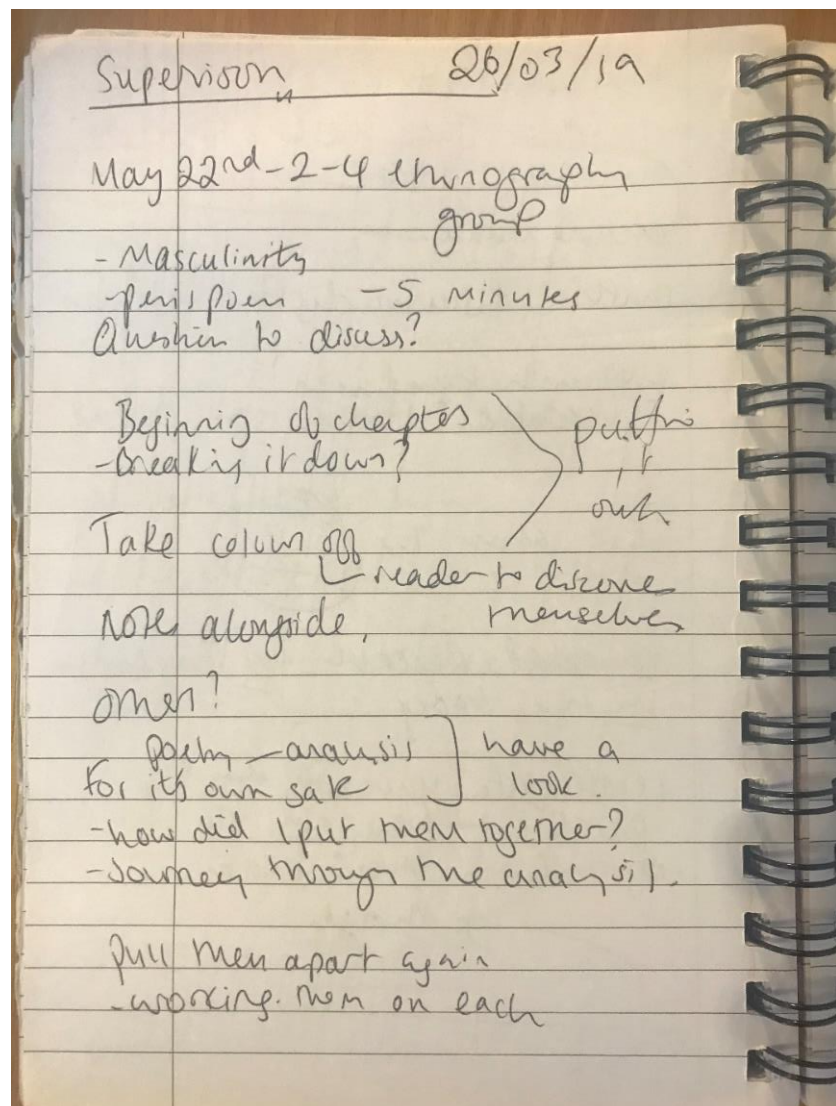 Supervision 26/03/19
May 22nd - 2-4 ethnography
group
- Masculinity
- penis poem - 5 minutes
Question to discuss?
Beginning of chapter
- breaking it down?
putting
it
out
Take colour off
reader to discover
themselves
Note alongside.
other?
poetry - analysis
for it's own sake
have a
look.
- how did I put them together?
- Journey through the analysis.
pull them apart again
- working them on each